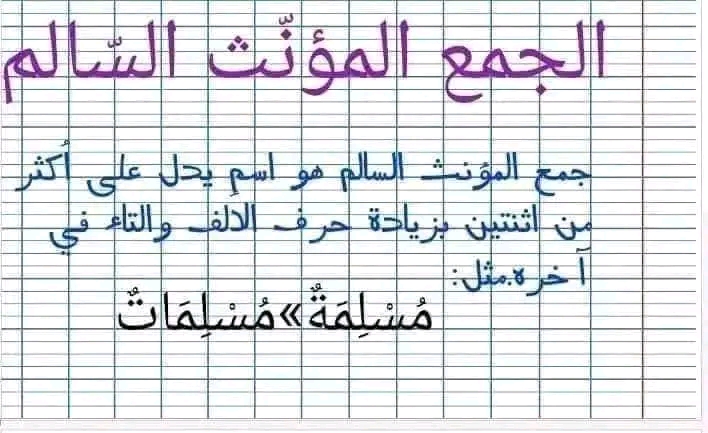 الجمع المؤنّث السّالم
جمع المؤنث السالم هو اسمِ يدل على أكثر
من اثنتين بزيادة حرف الالف والتاء في
آخره.مثل:
مُسْلِمَةٌ»مُسْلِمَاتٌ